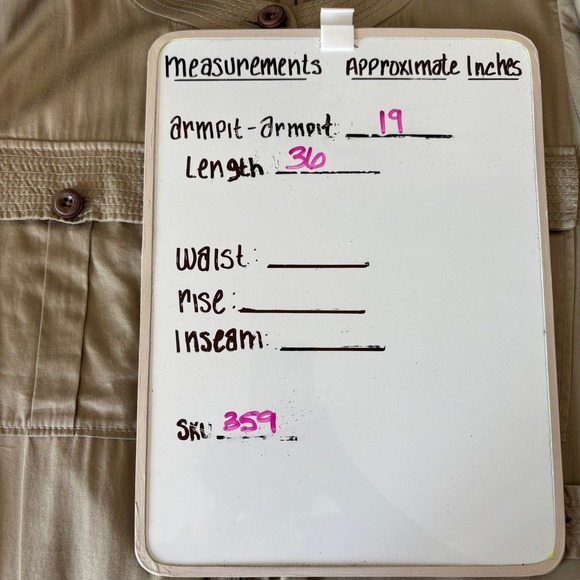 measurements Approximate Inches
armpit-armpit 19
Length 36
waist:
rise:
Inseam:
SKU 359